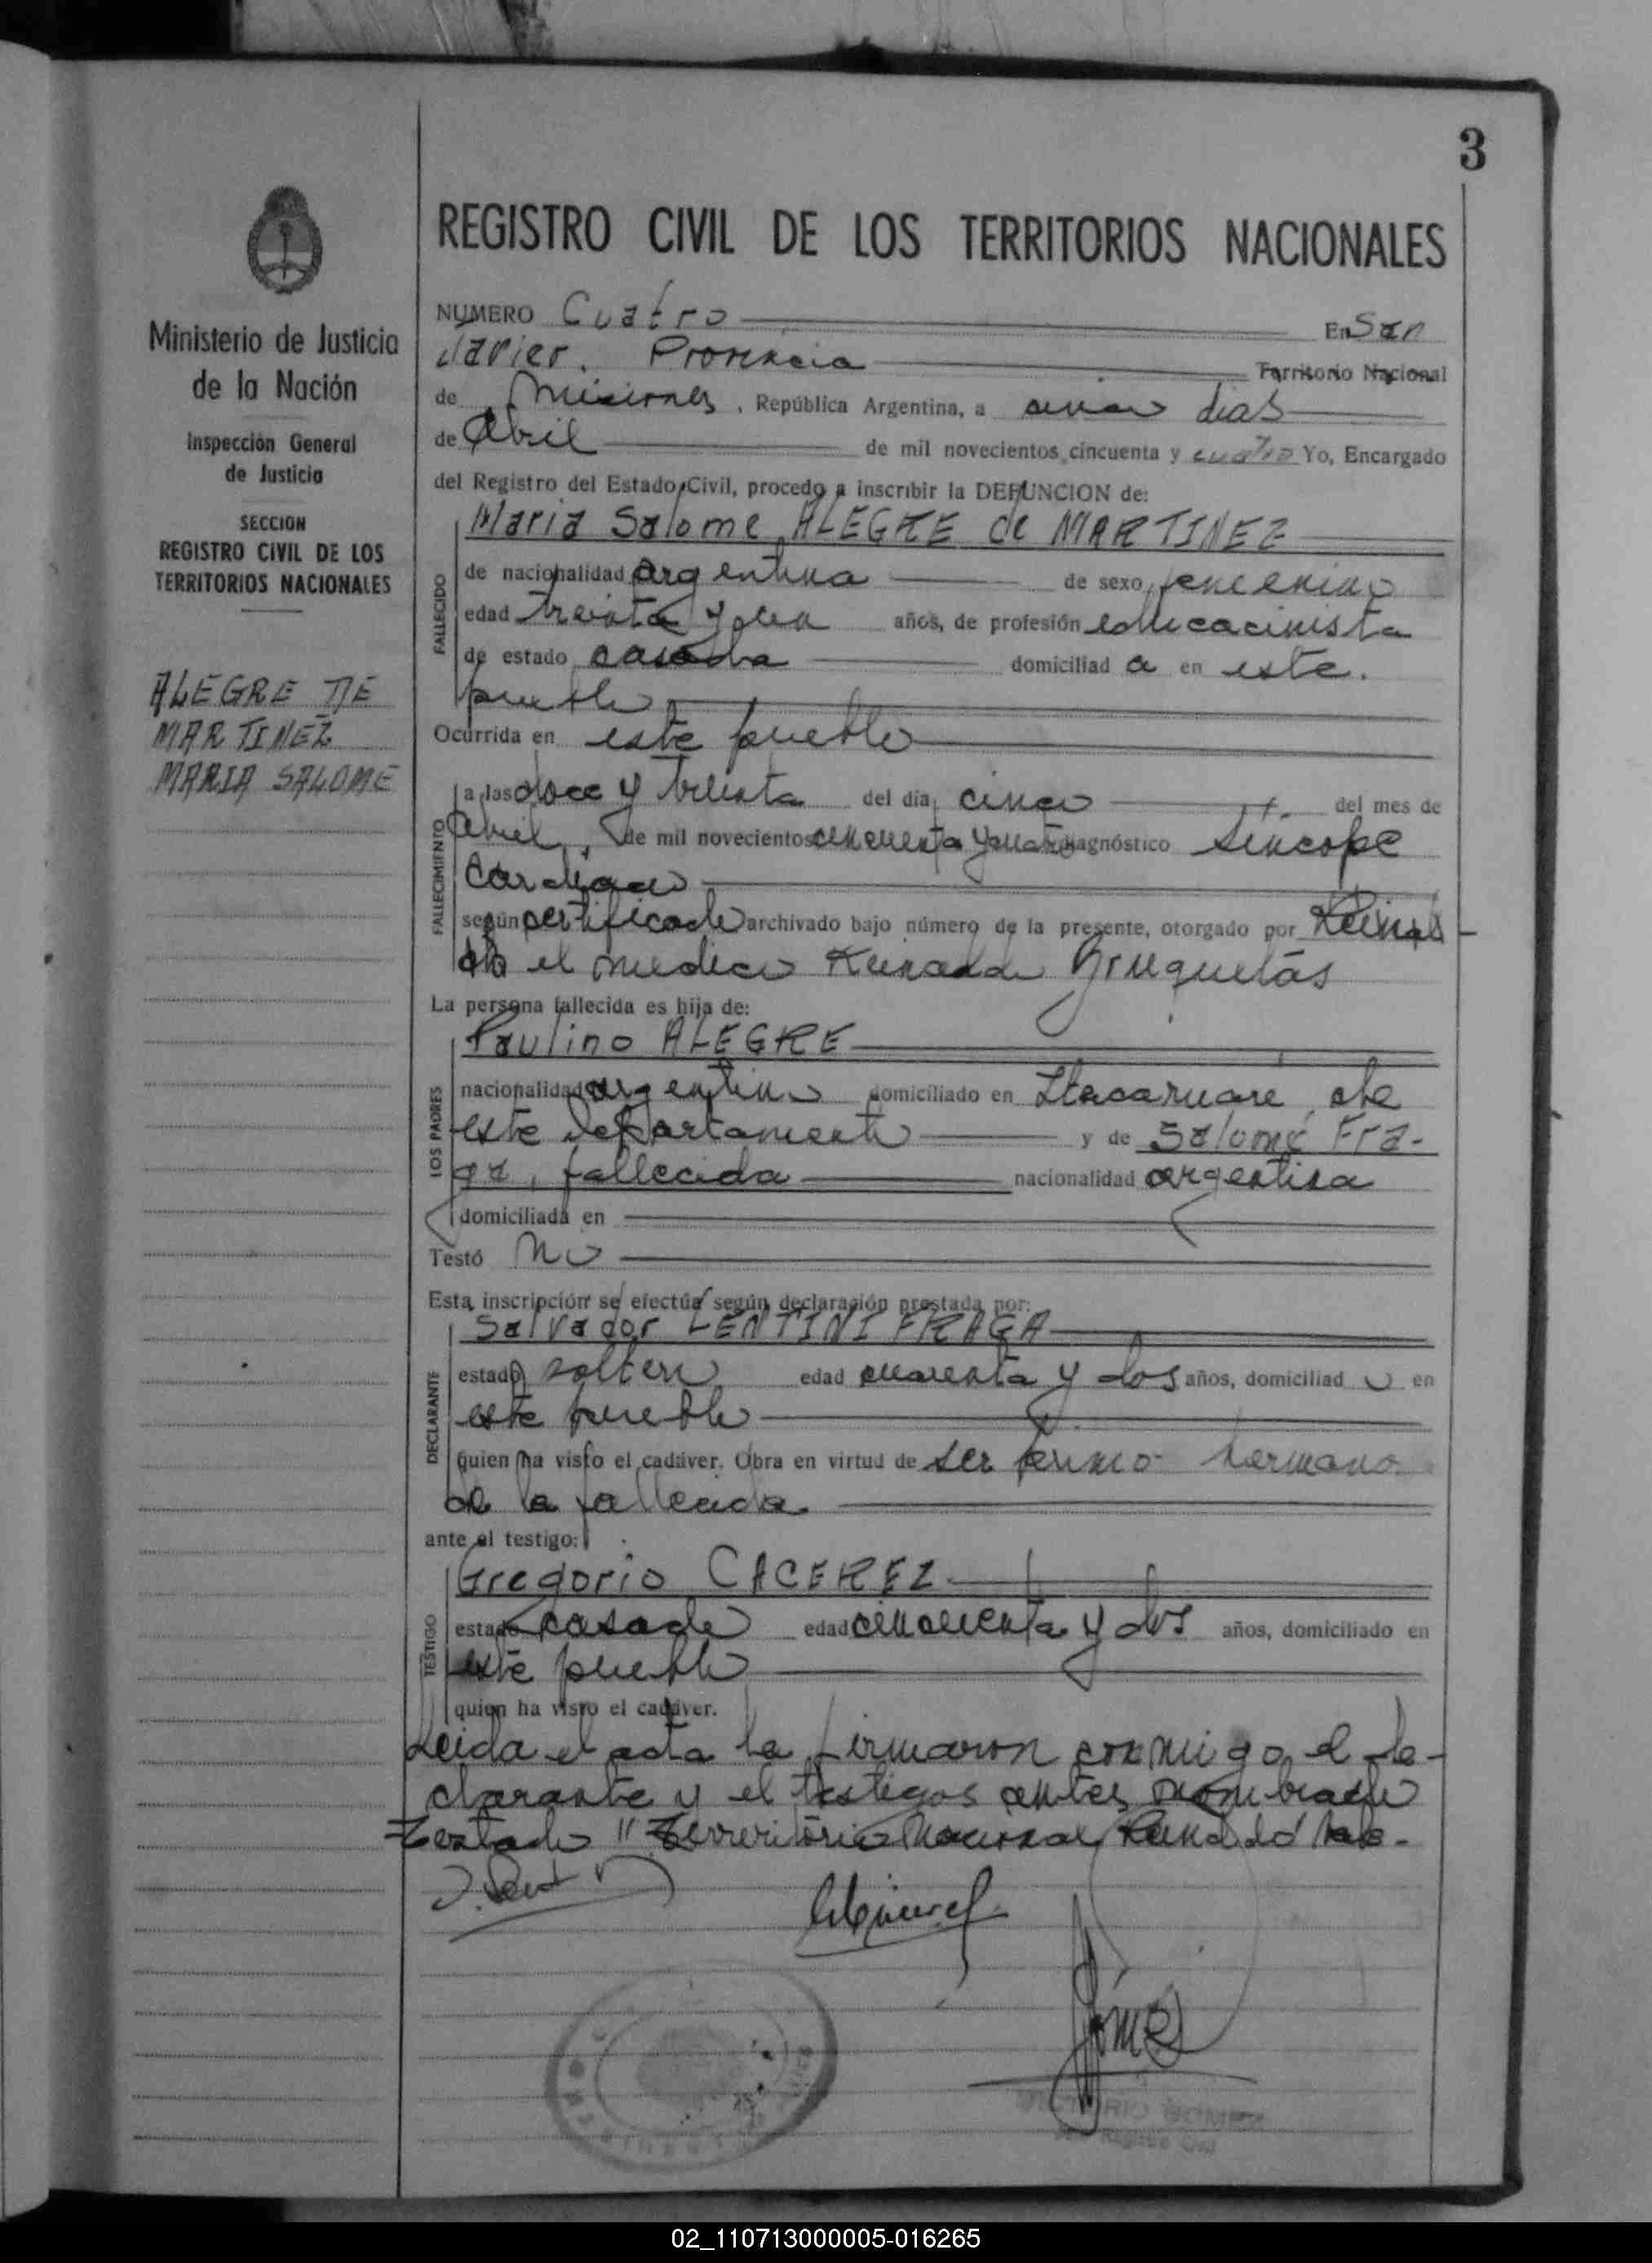 3
REGISTRO CIVIL DE LOS TERRITORIOS NACIONALES
Ministerio de Justicia
de la Nación
Inspección General
de Justicia
SECCION
REGISTRO CIVIL DE LOS
TERRITORIOS NACIONALES
ALEGRE DE
MARTINEZ
MARIA SALOME
NUMERO Cuatro En San
Javier. Provincia Territorio Nacional
de Misiones, República Argentina, a cinco dias
de Abril de mil novecientos cincuenta y cuatro Yo, Encargado
del Registro del Estado Civil, procedo a inscribir la DEFUNCION de:
Maria Salome ALEGRE de MARTINEZ
FALLECIDO
de nacionalidad argentina de sexo femenino
edad treinta y un años, de profesión educacinista
de estado casada domiciliad a en este.
pueblo
Ocurrida en este pueblo
FALLECIMIENTO
a las doce y treinta del día cinco del mes de
abril, de mil novecientos cincuenta y cuatro diagnóstico Sincope
Cardiaco
según certificado archivado bajo número de la presente, otorgado por
el medico
La persona fallecida es hija de:
LOS PADRES
Paulino ALEGRE
nacionalidad argentino domiciliado en Itacaruare, de
este departamento y de Salomé Fra-
ga, fallecida nacionalidad argentina
domiciliada en
Testó no
Esta inscripción se efectúa según declaración prestada por:
DECLARANTE
Salvador LENTINI FRAGA
estado soltero edad cuarenta y dos años, domiciliad o en
este pueblo
quien ha visto el cadáver. Obra en virtud de ser primo hermano
de la fallecida.
ante el testigo:
TESTIGO
Gregorio CACEREZ
estado casado edad cincuenta y dos años, domiciliado en
este pueblo
quien ha visto el cadáver.
Leida el acta la firmaron conmigo el de-
clarante y el testigos antes nombrado
Testado "Terreritorio Nacional
Gómez
02_110713000005-016265